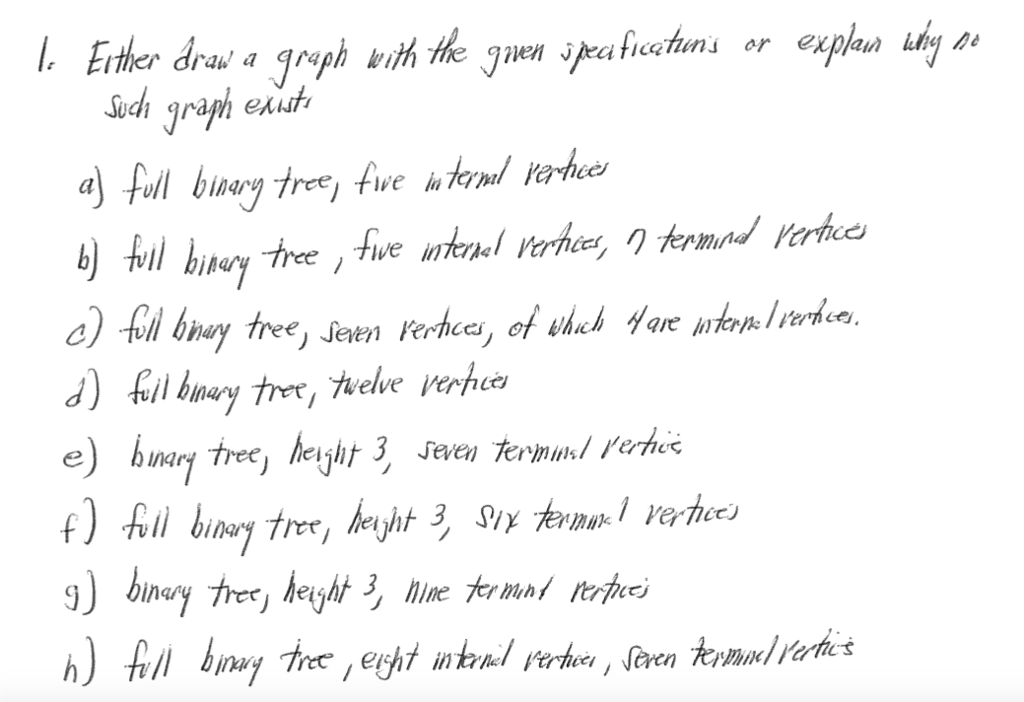 1. Either draw a graph with the given specifications or explain why no
such graph exists
a) full binary tree, five internal vertices
b) full binary tree, five internal vertices, 7 terminal vertices
c) full binary tree, seven vertices, of which 4 are internal vertices.
d) full binary tree, twelve vertices
e) binary tree, height 3, seven terminal vertices
f) full binary tree, height 3, six terminal vertices
g) binary tree, height 3, nine terminal vertices
h) full binary tree, eight internal vertices, seven terminal vertices